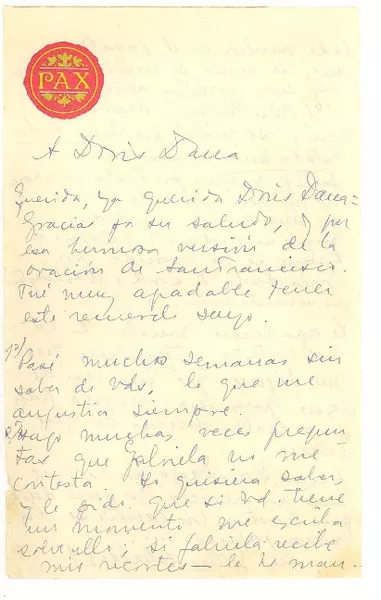 PAX
A Doris Dana
Querida, ya querida Doris Dana =
Gracias por su saludo, y por
esa hermosa versión de la
oración de San Francisco.
Fué muy agradable tener
este recuerdo suyo.
1º/
Pasé muchas semanas sin
saber de Vds, lo que me
angustia siempre.
2º/
Hago muchas veces pregun
tas que Gabriela no me
contesta. Yo quisiera saber,
y le pido que si Vd. tiene
un momento me escriba
sobre ello; si Gabriela recibe
mis recortes — le he man